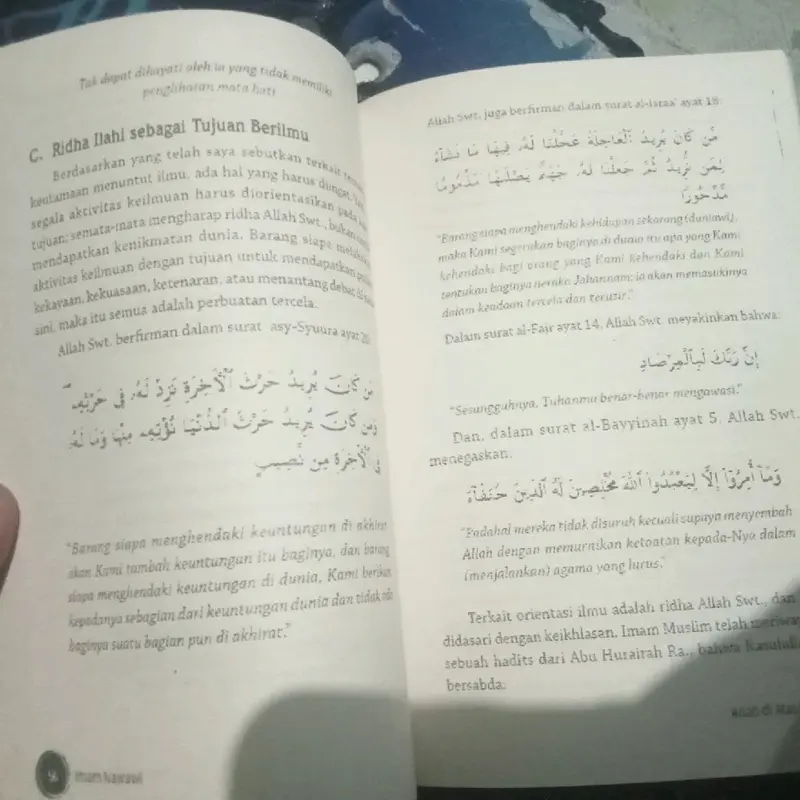 Tak dapat dihayati oleh ia yang tidak memiliki
penglihatan mata hati
C. Ridha Ilahi sebagai Tujuan Berilmu
Berdasarkan yang telah saya sebutkan terkait
keutamaan menuntut ilmu, ada hal yang harus diingat,
segala aktivitas keilmuan harus diorientasikan pada
tujuan: semata-mata mengharap ridha Allah Swt., bukan
mendapatkan kenikmatan dunia. Barang siapa
aktivitas keilmuan dengan tujuan untuk mendapatkan
kekayaan, kekuasaan, ketenaran, atau menantang debat di
sini, maka itu semua adalah perbuatan tercela.
Allah Swt. berfirman dalam surat asy-Syuura ayat 20
مَن كَانَ يُرِيدُ حَرْثَ ٱلْأَخِرَةِ نَزِدْ لَهُۥ فِى حَرْثِهِۦ
وَمَن كَانَ يُرِيدُ حَرْثَ ٱلدُّنْيَا نُؤْتِهِۦ مِنْهَا وَمَا لَهُۥ
فِى ٱلْأَخِرَةِ مِن نَّصِيبٍ
"Barang siapa menghendaki keuntungan di akhirat
akan Kami tambah keuntungan itu baginya, dan barang
siapa menghendaki keuntungan di dunia, Kami berikan
kepadanya sebagian dari keuntungan dunia dan tidak ada
baginya suatu bagian pun di akhirat."
56 Imam Nawawi
Allah Swt. juga berfirman dalam surat al-Israa' ayat 18:
مَّن كَانَ يُرِيدُ ٱلْعَاجِلَةَ عَجَّلْنَا لَهُۥ فِيهَا مَا نَشَآءُ
لِمَن نُّرِيدُ ثُمَّ جَعَلْنَا لَهُۥ جَهَنَّمَ يَصْلَىٰهَا مَذْمُومًا
مَّدْحُورًا
"Barang siapa menghendaki kehidupan sekarang (duniawi),
maka Kami segerakan baginya di dunia itu apa yang Kami
kehendaki bagi orang yang Kami kehendaki dan Kami
tentukan baginya neraka Jahannam; ia akan memasukinya
dalam keadaan tercela dan terusir."
Dalam surat al-Fajr ayat 14, Allah Swt. meyakinkan bahwa:
إِنَّ رَبَّكَ لَبِٱلْمِرْصَادِ
"Sesungguhnya, Tuhanmu benar-benar mengawasi."
Dan, dalam surat al-Bayyinah ayat 5, Allah Swt.
menegaskan:
وَمَآ أُمِرُوٓا۟ إِلَّا لِيَعْبُدُوا۟ ٱللَّهَ مُخْلِصِينَ لَهُ ٱلدِّينَ حُنَفَآءَ
"Padahal mereka tidak disuruh kecuali supaya menyembah
Allah dengan memurnikan ketaatan kepada-Nya dalam
(menjalankan) agama yang lurus."
Terkait orientasi ilmu adalah ridha Allah Swt., dan
didasari dengan keikhlasan, Imam Muslim telah
sebuah hadits dari Abu Hurairah Ra., bahwa
bersabda:
Adab di Atas